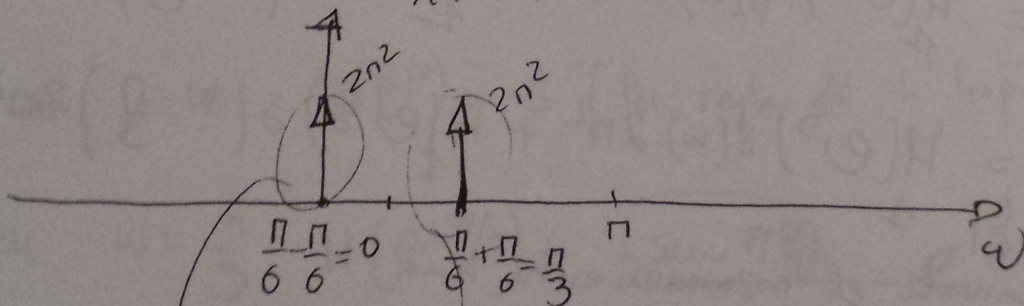 2π²
2π²
π/6 - π/6 = 0
π/6 + π/6 = π/3
π
ω